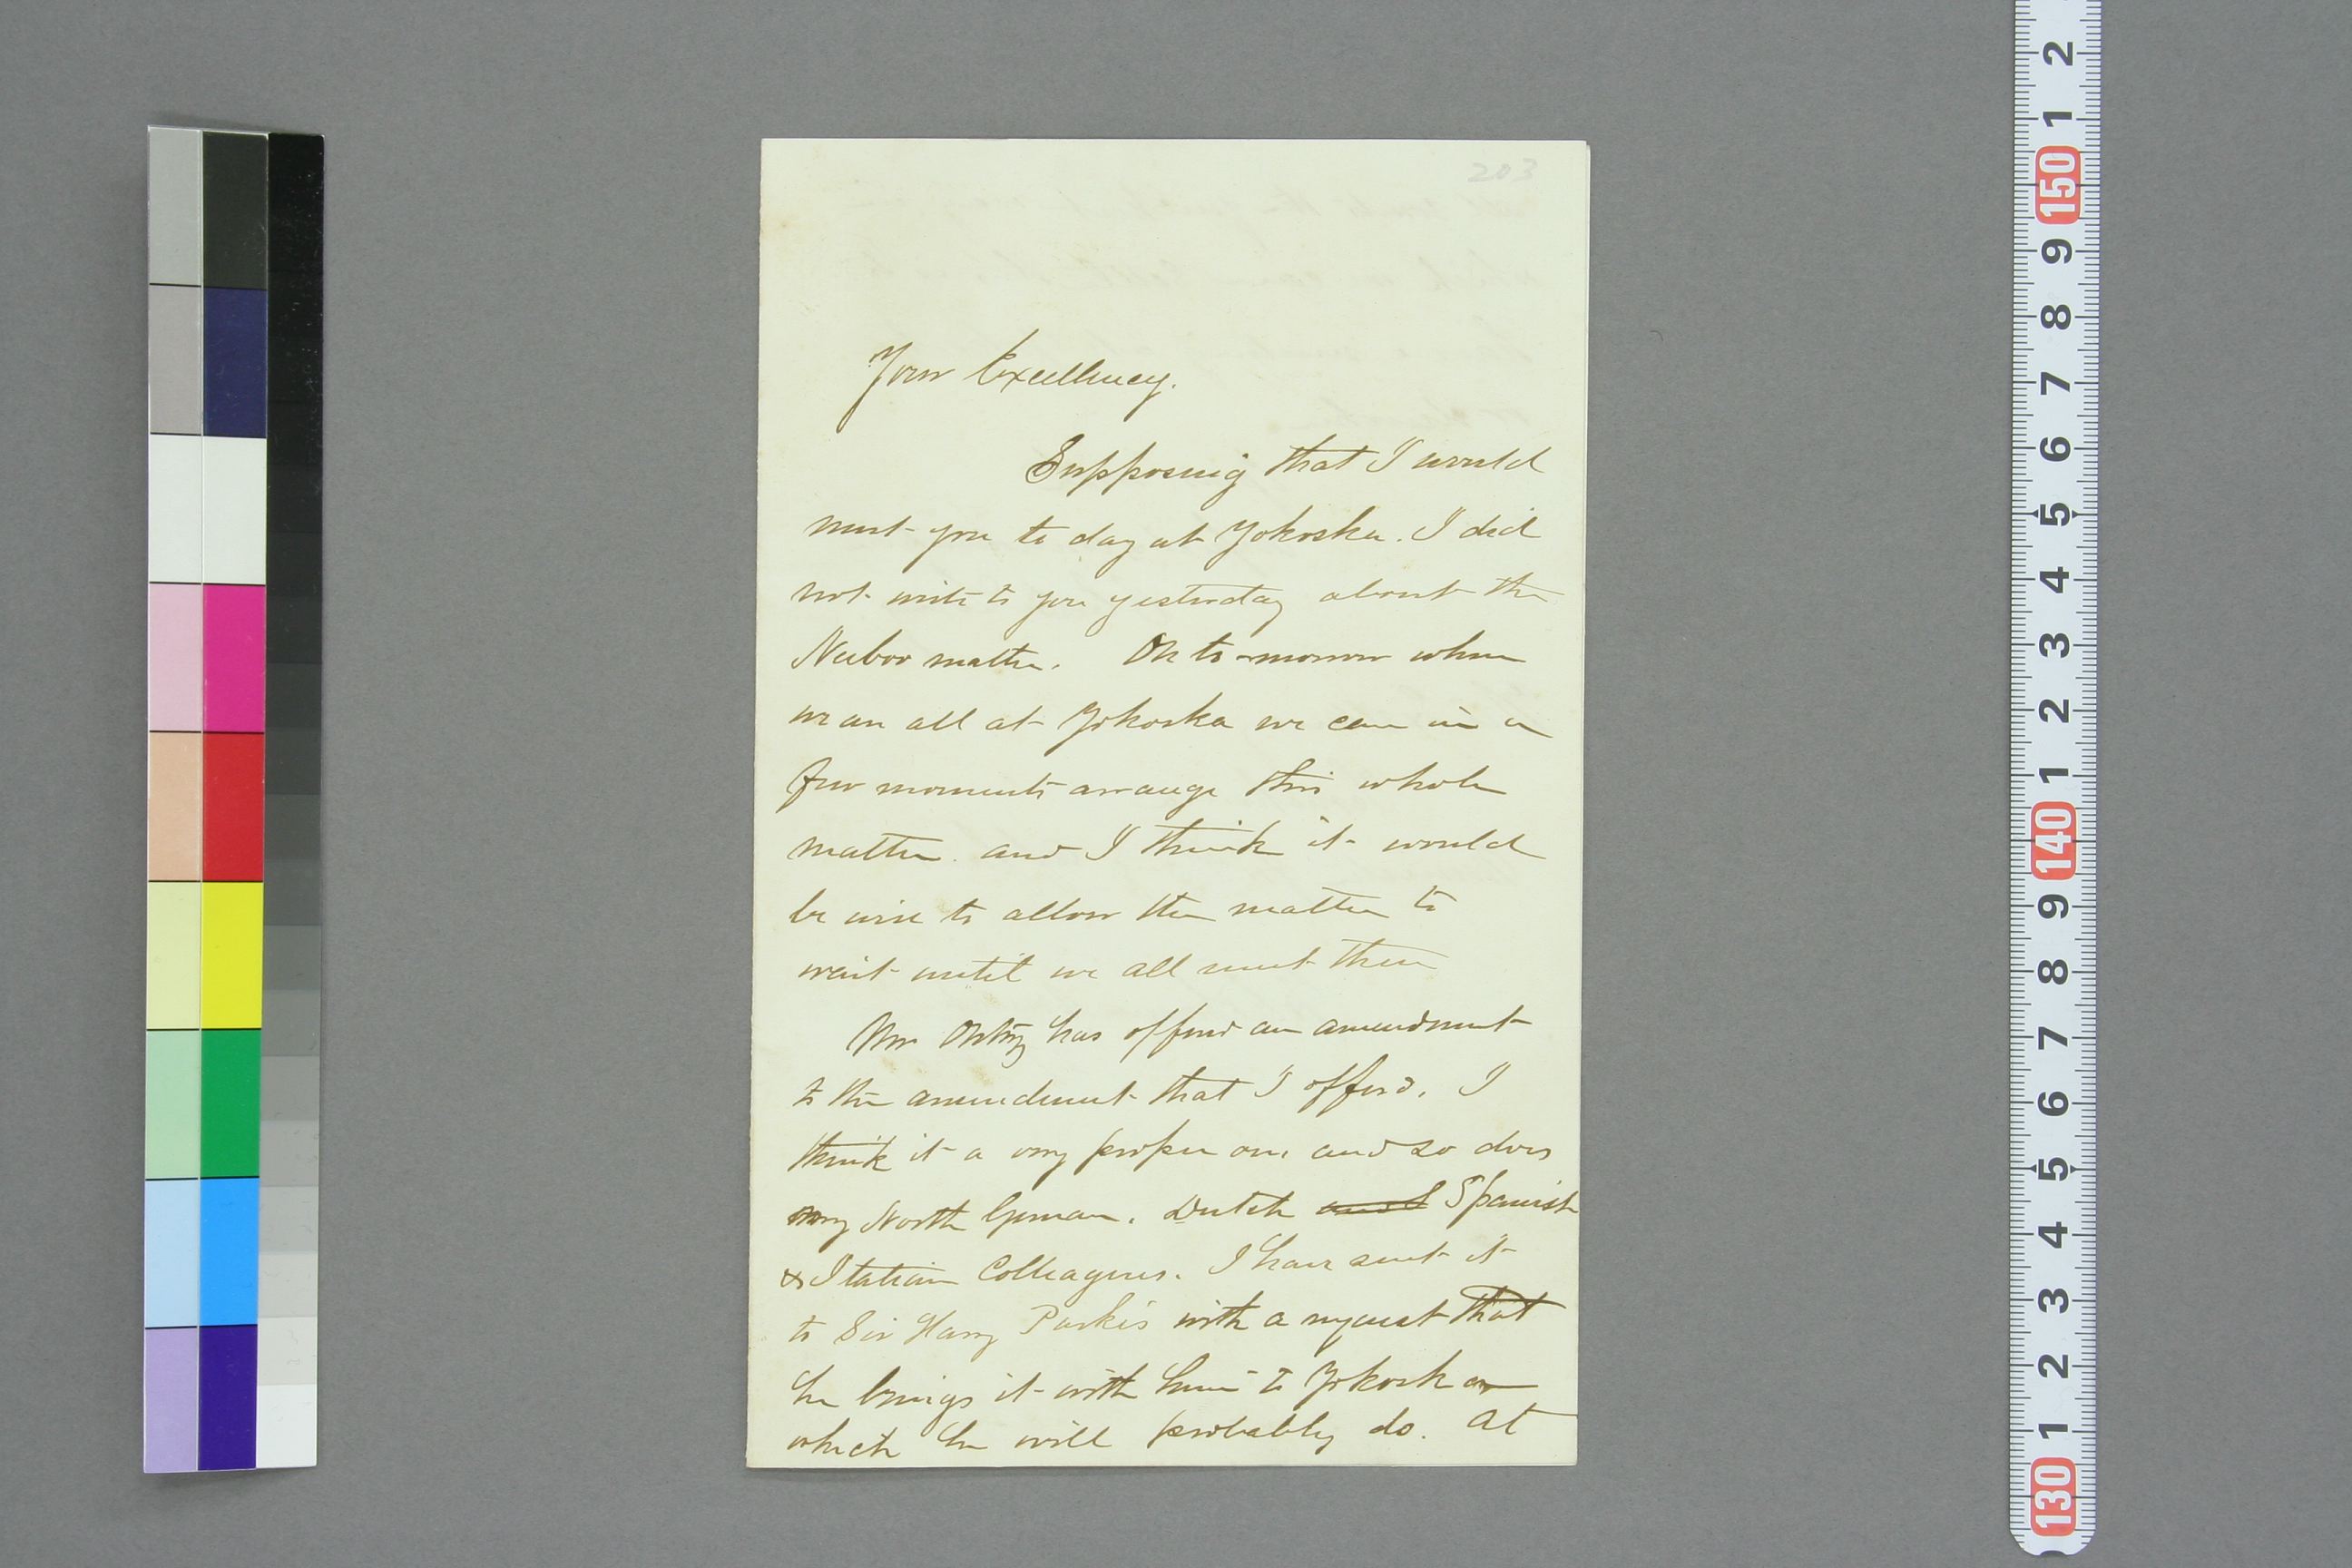 203
Your Excellency.
Supposing that I would
meet you to day at Yokoska. I did
not write to you yesterday about the
matter. On to-morrow when
we are all at Yokoska we can in a
few moments arrange this whole
matter. and I think it would
be wise to allow the matter to
wait until we all meet there
Mr has offered an amendment
to the amendment that I offered. I
think it a very proper one and so does
my North German. Dutch and Spanish
& Italian Colleagues. I have sent it
to Sir Harry Parkes with a request that
he brings it with him to Yokoska
which he will probably do. At
2
1
150
9
8
7
6
5
4
3
2
1
140
9
8
7
6
5
4
3
2
1
130